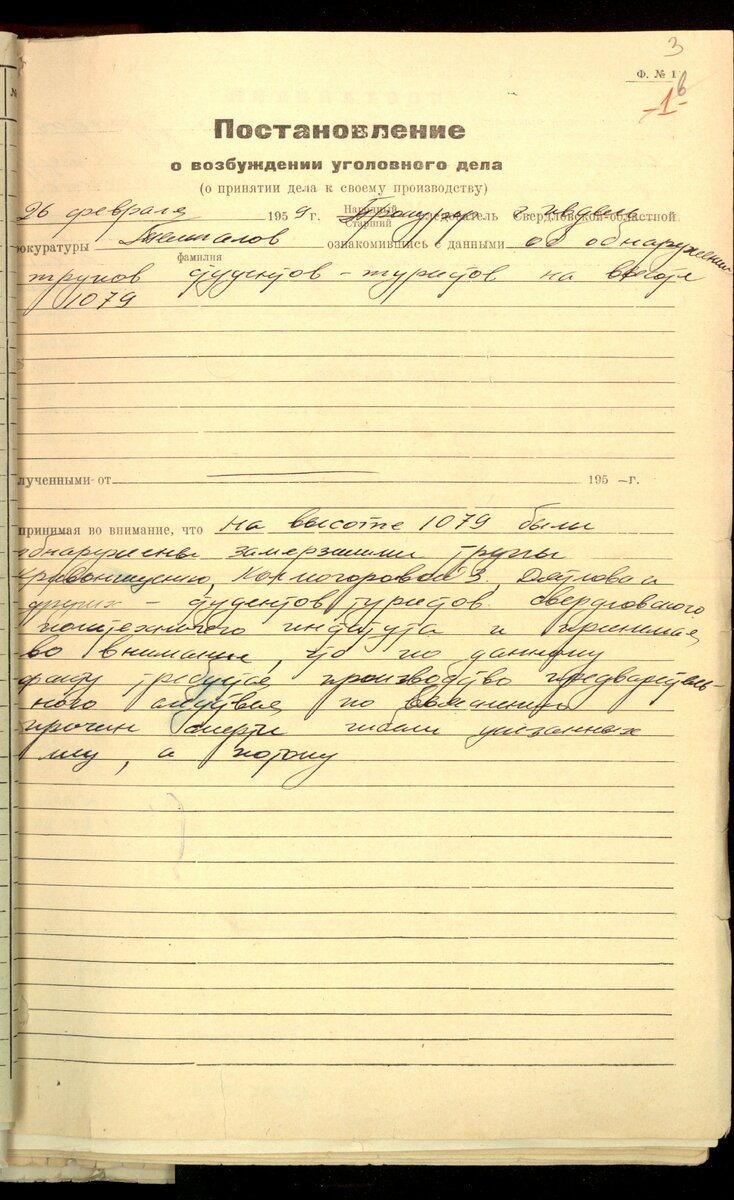 3
Ф. № 1
6
-1-
Постановление
о возбуждении уголовного дела
(о принятии дела к своему производству)
26 февраля 1959 г. Народный Старший Прокурор следователь г. Ивдель Свердловской областной
рокуратуры Темпалов ознакомившись с данными об обнаружении
фамилия
трупов студентов-туристов на высоте
1079
лученными от 195 – г.
принимая во внимание, что на высоте 1079 были
обнаружены замерзшими трупы
Кривонищенко, Колмогоровой З., Дятлова и
других – студентов туристов Свердловского
политехного института и принимая
во внимание, что по данному
факту требуется производство предваритель-
ного следствия по выяснению
причин смерти указанных
лиц, а потому